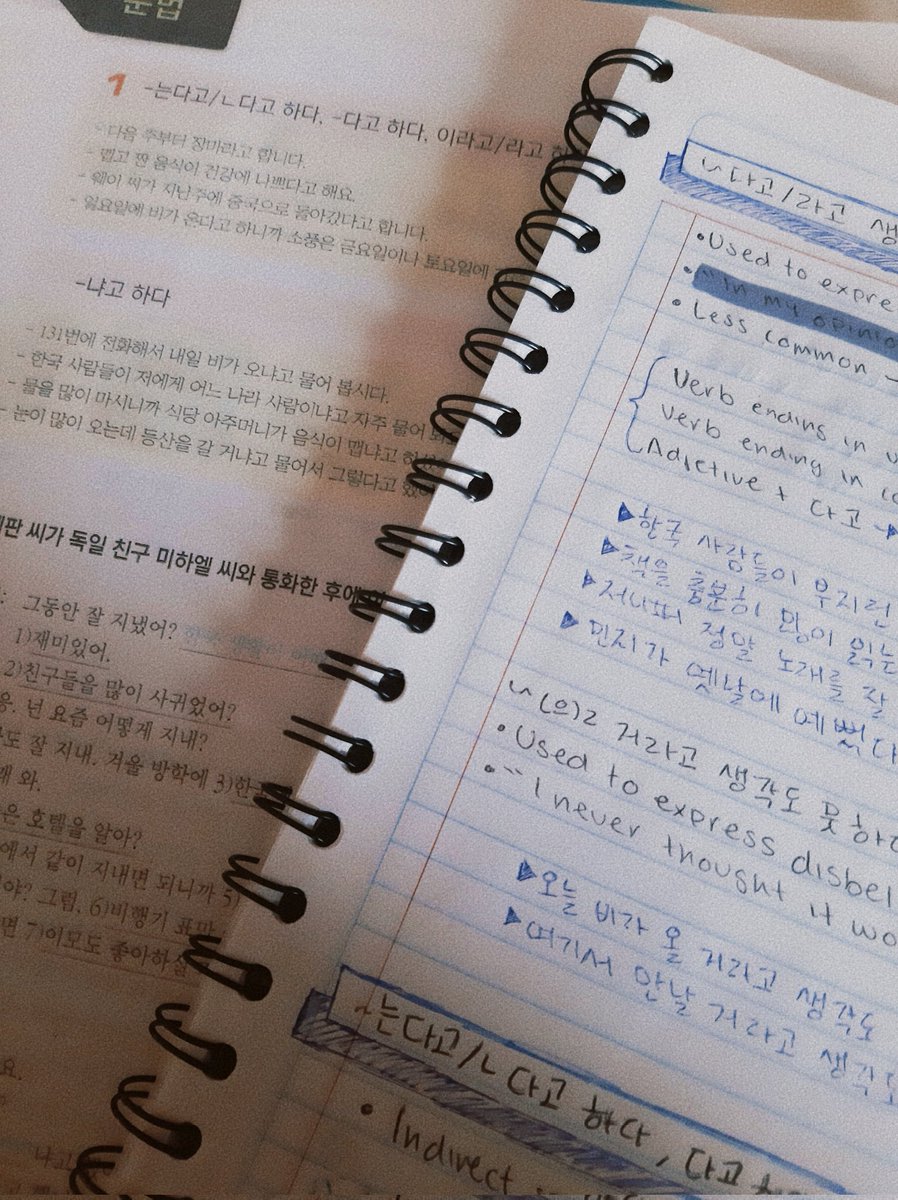 문법
1 -는다고/ㄴ다고 하다, -다고 하다, 이라고/라고
- 다음 주부터 장마라고 합니다.
- 맵고 짠 음식이 건강에 나쁘다고 해요.
- 웨이 씨가 지난주에 중국으로 돌아갔다고 합니다.
- 일요일에 비가 온다고 하니까 소풍은 금요일이나 토요일에
-냐고 하다
- 131번에 전화해서 내일 비가 오냐고 물어 봅시다.
- 한국 사람들이 저에게 어느 나라 사람이냐고 자주 물어
- 물을 많이 마시니까 식당 아주머니가 음식이 맵냐고
- 눈이 많이 오는데 등산을 갈 거냐고 물어서 그렇다고
씨가 독일 친구 미하엘 씨와 통화한 후에
그동안 잘 지냈어?
1)재미있어.
2)친구들을 많이 사귀었어?
넌 요즘 어떻게 지내?
잘 지내. 겨울 방학에 3)한
와.
은 호텔을 알아?
에서 같이 지내면 되니까 5)
그럼. 6)비행기 표
면 7)이모도 좋아하실
요.
~다고/라고 생
• Used to expre
• "In my opinio
• Less common →
Verb ending in
Verb ending in
Adjctive + 다고 →
▶한국 사람들이 부지런
▶책을 충분히 많이 읽는
▶저니까 정말 노래를 잘
▶민지가 옛날에 예뻤다
~(으)ㄹ 거라고 생각도 못하
• Used to express disbel
• "I never thought it wo
▶오늘 비가 올 거라고 생각도
▶여기서 만날 거라고 생각도
-는다고/ㄴ다고 하다, 다고
• Indirect